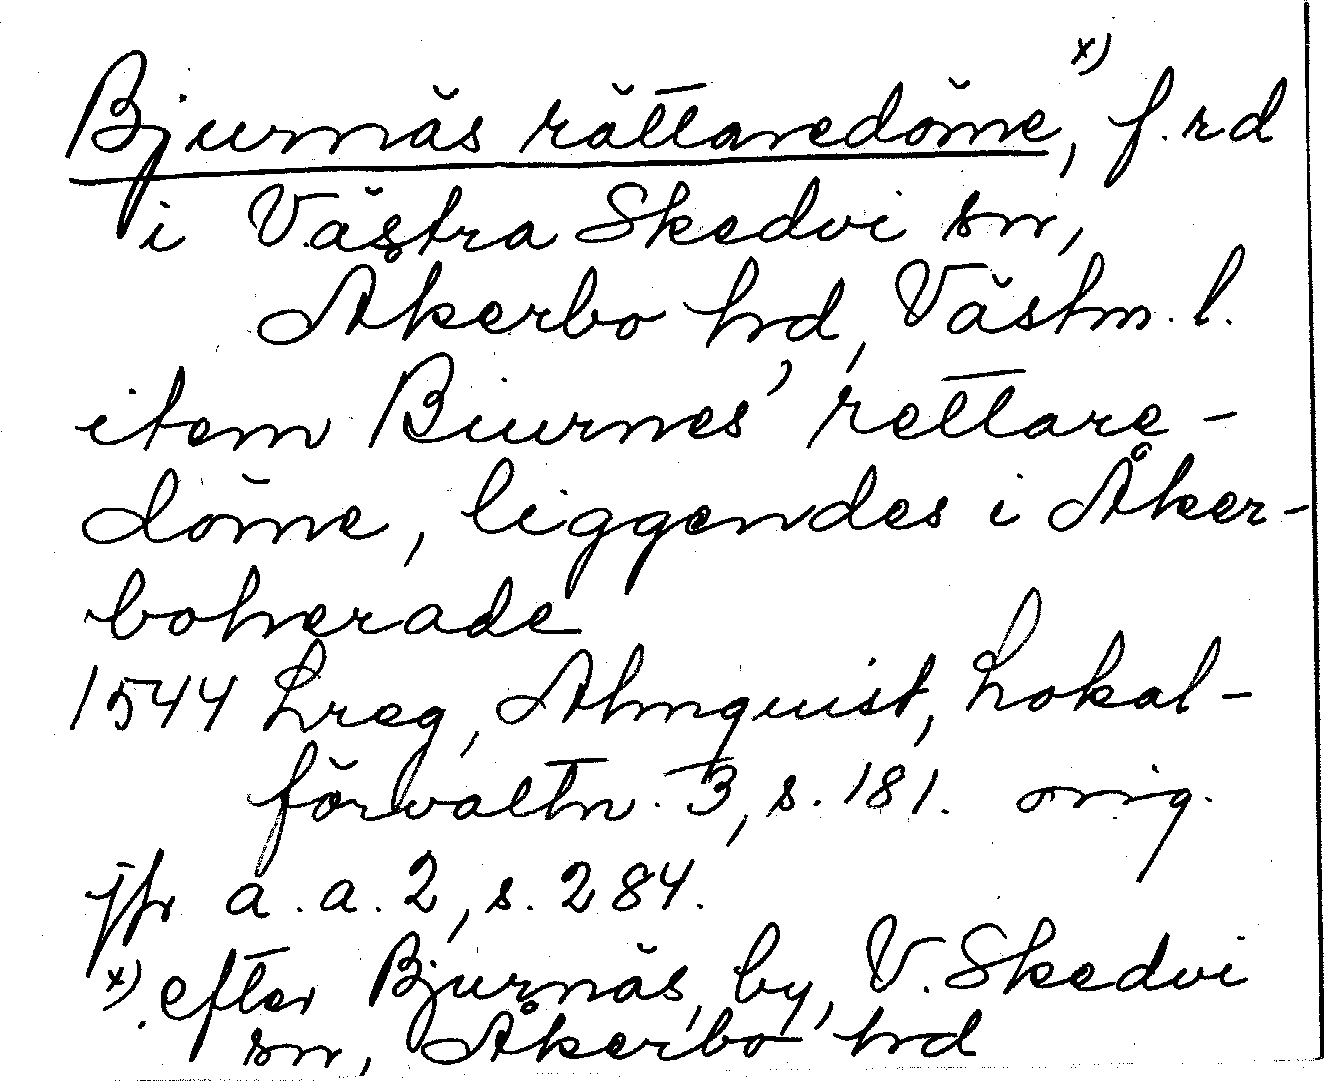 Bjurnäs rättaredöme, x) f.rd
i Västra Skedvi sn,
Åkerbo hd, Västm. l.
item Biurnes' rettare-
döme, liggendes i Åker-
boherade
1544 Lreg, Almquist, Lokal-
förvaltn. 3, s. 181. orig.
jfr a.a. 2, s. 284.
x) efter Bjurnäs, by, V. Skedvi
sn, Åkerbo hd